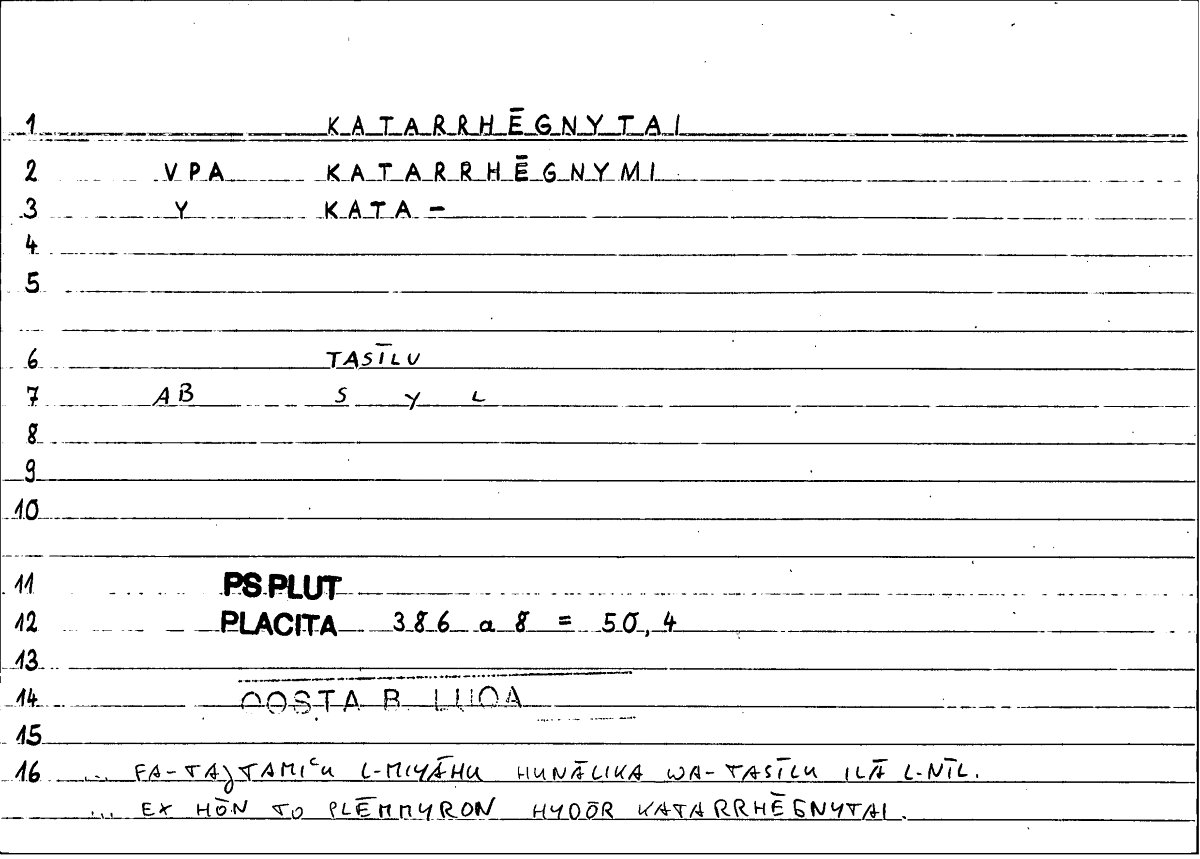 1 KATARRHĒGNYTAI
2 VPA KATARRHĒGNYMI
3 Y KATA -
4
5
6 TASĪLU
7 AB S Y L
8
9
10
11 PS.PLUT
12 PLACITA 386 a 8 = 50,4
13
14 QOSTA B. LUQA
15
16 ... FA-TAJTAMIʿU L-MIYĀHU HUNĀLIKA WA-TASĪLU ILĀ L-NĪL.
... EX HŌN TO PLĒMMYRON HYDŌR KATARRHĒGNYTAI.